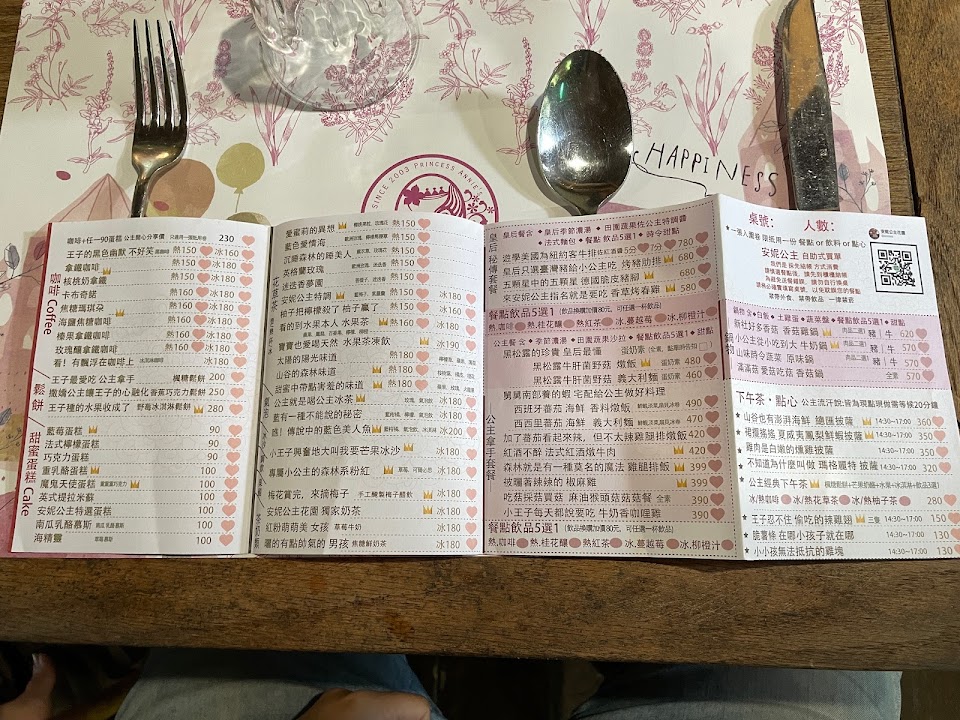 SINCE 2003 PRINCESS ANNIE'S
HAPPINESS
咖啡+任一90蛋糕 230
咖啡 Coffee
王子的黑色幽默 不好笑 熱150 冰180
拿鐵咖啡 熱150 冰160
核桃奶拿鐵 熱150 冰180
卡布奇諾 熱150 冰160
焦糖瑪琪朵 熱150 冰180
海鹽焦糖咖啡 熱150 冰180
榛果拿鐵咖啡 熱150 冰180
玫瑰釀拿鐵咖啡 熱150 冰180
看!有飄浮在咖啡上 冰淇淋咖啡 冰180
鬆餅
王子最愛吃 公主拿手 楓糖鬆餅 200
撒嬌公主讓王子的心融化 香蕉巧克力鬆餅 250
王子種的水果收成了 野莓冰淇淋鬆餅 280
甜蜜蛋糕 Cake
藍莓蛋糕 90
法式檸檬蛋糕 90
巧克力蛋糕 90
重乳酪蛋糕 100
魔鬼天使蛋糕 100
英式提拉米蘇 100
安妮公主特選蛋糕 100
南瓜乳酪慕斯 100
海精靈 100
愛蜜莉的異想 熱150
藍色愛情海 熱150
沉睡森林的睡美人 熱150
英格蘭玫瑰 熱150
迷迭香夢園 熱150
安妮公主特調 熱150
柚子把檸檬殺了 柚子贏了 熱150 冰180
看的到水果本人 水果茶 熱160
寶寶也愛喝天然 水果茶凍飲 冰190
太陽的陽光味道 冰180
山谷的森林味道 冰180
甜蜜中帶點害羞的味道 冰180
公主就是喝公主冰茶 冰180
藍有一種不能說的秘密 冰180
瞧!傳說中的藍色美人魚 冰200
小王子興奮地大叫我要芒果冰沙 冰180
專屬小公主的森林系粉紅 冰180
梅花賞完,來摘梅子 手工釀製梅子醋飲 冰180
安妮公主花園 獨家奶茶 冰180
紅粉萌萌美 女孩 草莓牛奶 冰180
曬的有點帥氣的 男孩 焦糖鮮奶茶 冰180
皇后秘傳套餐
皇后餐含 ◆皇后季節濃湯 ◆田園蔬果佐公主特調醬
◆法式麵包 ◆餐點飲品5選1 ◆時令甜點
遊學美國為的紐約客牛排 5分 7分 780
皇后只選臺灣豬給小公主吃 烤豬肋排 680
五顆星中的五顆星 德國脆皮豬腳 680
來安妮公主指名就是要吃 香草烤春雞 580
餐點飲品5選1 (飲品換購加價80元,可任選一杯飲品)
熱,咖啡 熱,桂花釀 熱紅茶 冰,蔓越莓 冰,柳橙汁
公主拿手套餐
公主餐含 ◆季節濃湯 ◆田園蔬果沙拉 ◆餐點飲品5選1 ◆甜點
黑松露的珍貴 皇后最懂
黑松露牛肝菌野菇 燉飯 蛋奶素 480
黑松露牛肝菌野菇 義大利麵 蛋奶素 460
舅舅南部養的蝦 宅配給公主做好料理
西班牙番茄 海鮮 香料燉飯 490
西西里番茄 海鮮 義大利麵 470
加了蕃茄看起來辣,但不太辣雞腿排燉飯 420
紅酒不醉 法式紅酒燉牛肉 420
森林就是有一種莫名的魔法 雞腿排飯 399
被曬著辣辣的 椒麻雞 399
吃菇採菇買菇 麻油猴頭菇菇菇餐 全素 390
小王子每天都說要吃 牛奶香咖哩雞 390
餐點飲品5選1 (飲品換購加價80元,可任選一杯飲品)
熱,咖啡 熱,桂花釀 熱,紅茶 冰,蔓越莓 冰,柳橙汁
桌號: 人數:
一張入園券 限抵用一份 餐點 or 飲料 or 點心
安妮公主 自助式買單
我們是 採先結帳 方式消費
禁帶外食、禁帶飲品 一律謝絕
安妮公主花園
鍋物
鍋物 含◆白飯 ◆土雞蛋 ◆蔬菜盤 ◆餐點飲品5選1 ◆甜點
新社好多香菇 香菇雞鍋 620
小公主從小吃到大 牛奶鍋 豬 牛 570
山味時令蔬菜 原味鍋 豬 牛 520
滿滿菇 愛菇吃菇 香菇鍋 全素 570
下午茶・點心 公主流汗說:皆為現點現做需等候20分鐘
山谷也有澎湃海鮮 總匯披薩 14:30~17:00 360
裙襬搖搖 夏威夷鳳梨鮮蝦披薩 14:30~17:00 350
雞肉是白嫩的燻雞披薩 14:30~17:00 350
不知道為什麼叫做 瑪格麗特 披薩 14:30~17:00 320
公主經典下午茶
冰/熱咖啡 冰/熱花草茶 冰/熱柚子茶 280
王子忍不住 偷吃的辣雞翅 三隻 14:30~17:00 150
脆薯條 在哪小孩子就在哪 14:30~17:00 130
小小孩無法抵抗的雞塊 14:30~17:00 130